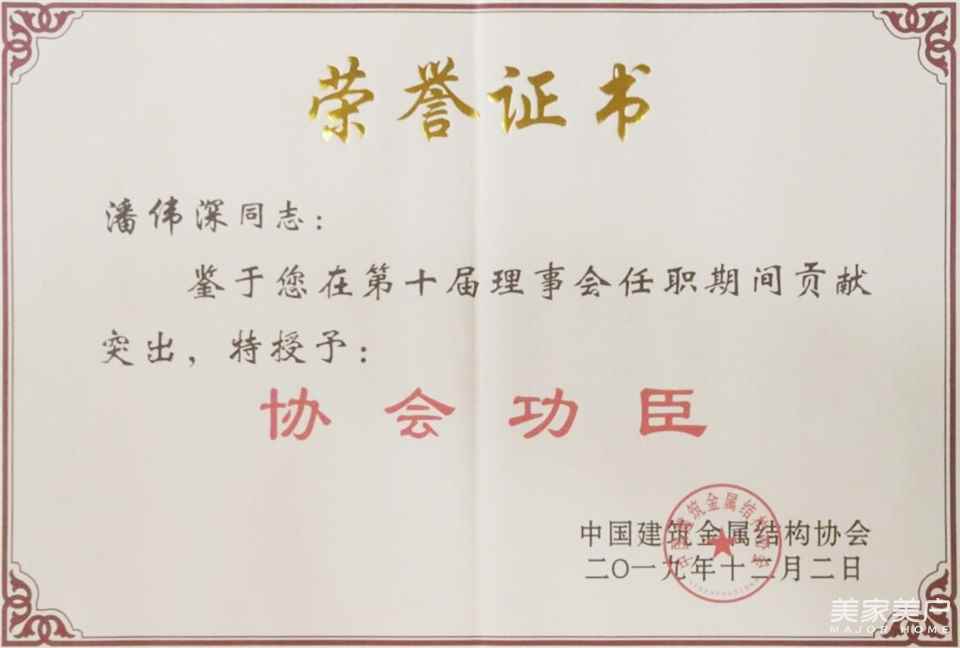 荣誉证书
潘伟深同志：
鉴于您在第十届理事会任职期间贡献
突出，特授予：
协会功臣
中国建筑金属结构协会
中国建筑金属结构协会
二〇一九年十二月二日
美家美户
MAJOR HOME